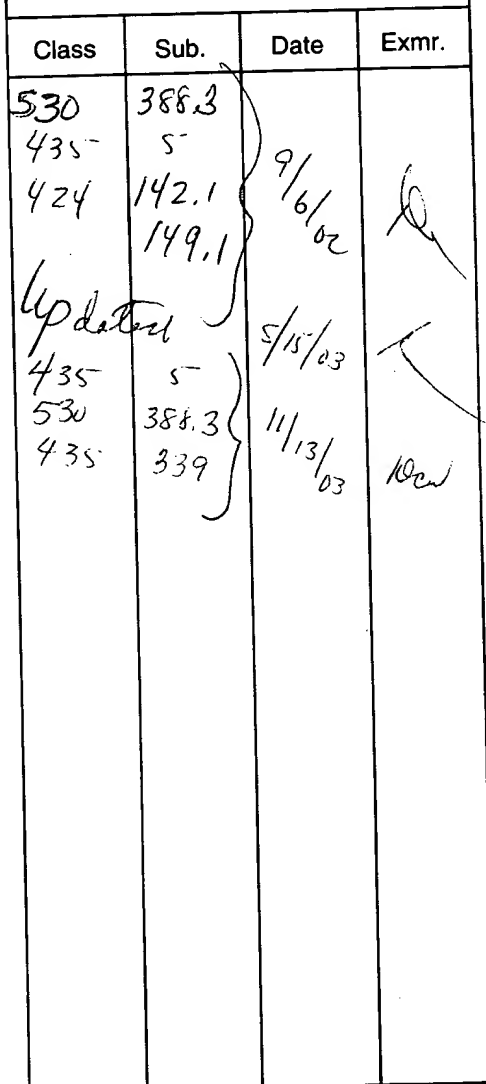 Class Sub. Date Exmr.
530 388.3
435 5
424 142.1 9/6/02
149.1
Updated 5/15/03
435 5
530 388.3 11/13/03
435 339